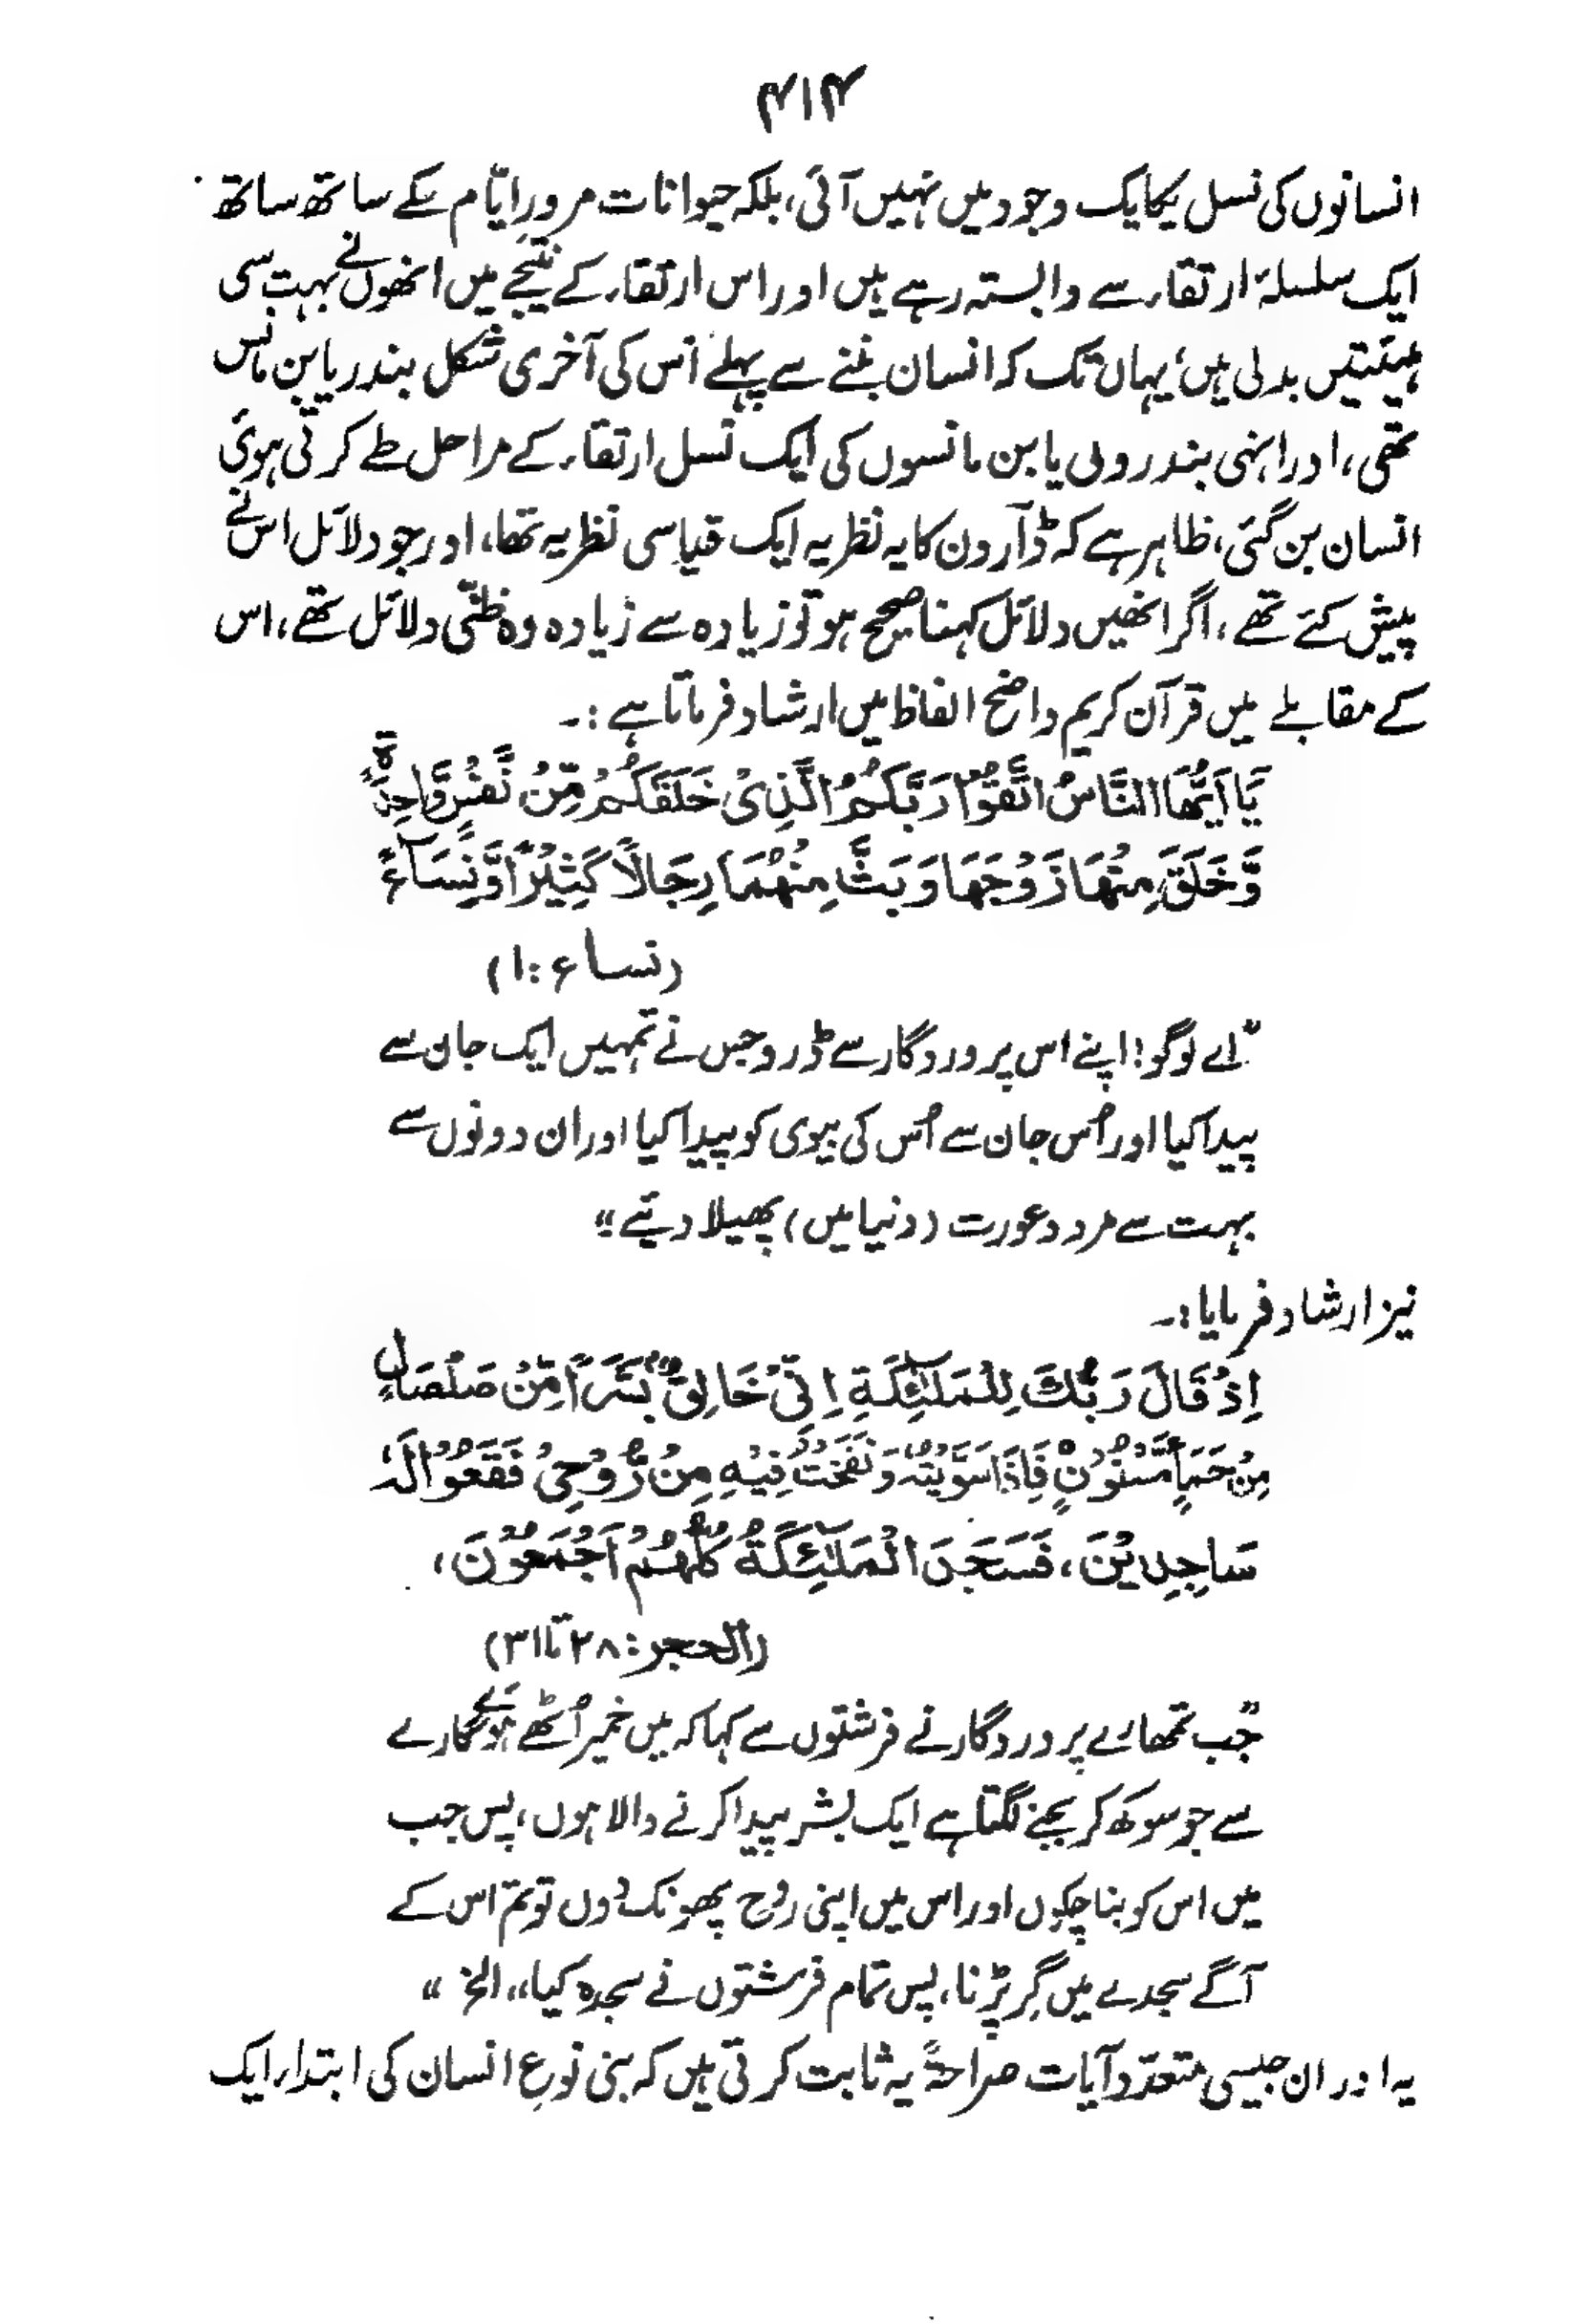 ۴۱۴
انسانوں کی نسل یکایک وجود میں نہیں آئی، بلکہ حیوانات مرورِ ایّام کے ساتھ ساتھ
ایک سلسلۂ ارتقاء سے وابستہ رہے ہیں اور اس ارتقاء کے نتیجے میں انھوں نے بہت سی
ہیئتیں بدلی ہیں، یہاں تک کہ انسان بننے سے پہلے اس کی آخری شکل بندر یا بن مانس
تھی، اور انہی بندروں یا بن مانسوں کی ایک نسل ارتقاء کے مراحل طے کرتی ہوئی
انسان بن گئی، ظاہر ہے کہ ڈآرون کا یہ نظریہ ایک قیاسی نظریہ تھا، اور جو دلائل اس نے
پیش کئے تھے، اگر انھیں دلائل کہنا صحیح ہو تو زیادہ سے زیادہ وہ ظنّی دلائل تھے، اس
کے مقابلے میں قرآن کریم واضح الفاظ میں ارشاد فرماتا ہے :۔
يَا اَيُّهَا النَّاسُ اتَّقُوْا رَبَّكُمُ الَّذِىْ خَلَقَكُمْ مِّنْ نَّفْسٍ وَّاحِدَةٍ
وَّخَلَقَ مِنْهَا زَوْجَهَا وَبَثَّ مِنْهُمَا رِجَالًا كَثِيْرًا وَّنِسَآءً
(نساء : ۱)
”اے لوگو! اپنے اس پروردگار سے ڈرو جس نے تمہیں ایک جان سے
پیدا کیا اور اُس جان سے اُس کی بیوی کو پیدا کیا اور ان دونوں سے
بہت سے مرد و عورت (دنیا میں) پھیلا دیئے“
نیز ارشاد فرمایا :۔
اِذْ قَالَ رَبُّكَ لِلْمَلٰٓئِكَةِ اِنِّىْ خَالِقٌ بَشَرًا مِّنْ صَلْصَالٍ
مِنْ حَمَاٍ مَّسْنُوْنٍ فَاِذَا سَوَّيْتُهٗ وَنَفَخْتُ فِيْهِ مِنْ رُّوْحِىْ فَقَعُوْا لَهٗ
سَاجِدِيْنَ، فَسَجَدَ الْمَلٰٓئِكَةُ كُلُّهُمْ اَجْمَعُوْنَ،
(الحجر : ۲۸ تا ۳۱)
”جب تمھارے پروردگار نے فرشتوں سے کہا کہ میں خمیر اُٹھے ہوئے گارے
سے جو سوکھ کر بجنے لگتا ہے ایک بشر پیدا کرنے والا ہوں، پس جب
میں اس کو بنا چکوں اور اس میں اپنی روح پھونک دوں تو تم اس کے
آگے سجدے میں گر پڑنا، پس تمام فرشتوں نے سجدہ کیا،، الخ “
یہ اور ان جیسی متعدّد آیات صراحۃً یہ ثابت کرتی ہیں کہ بنی نوعِ انسان کی ابتداء ایک